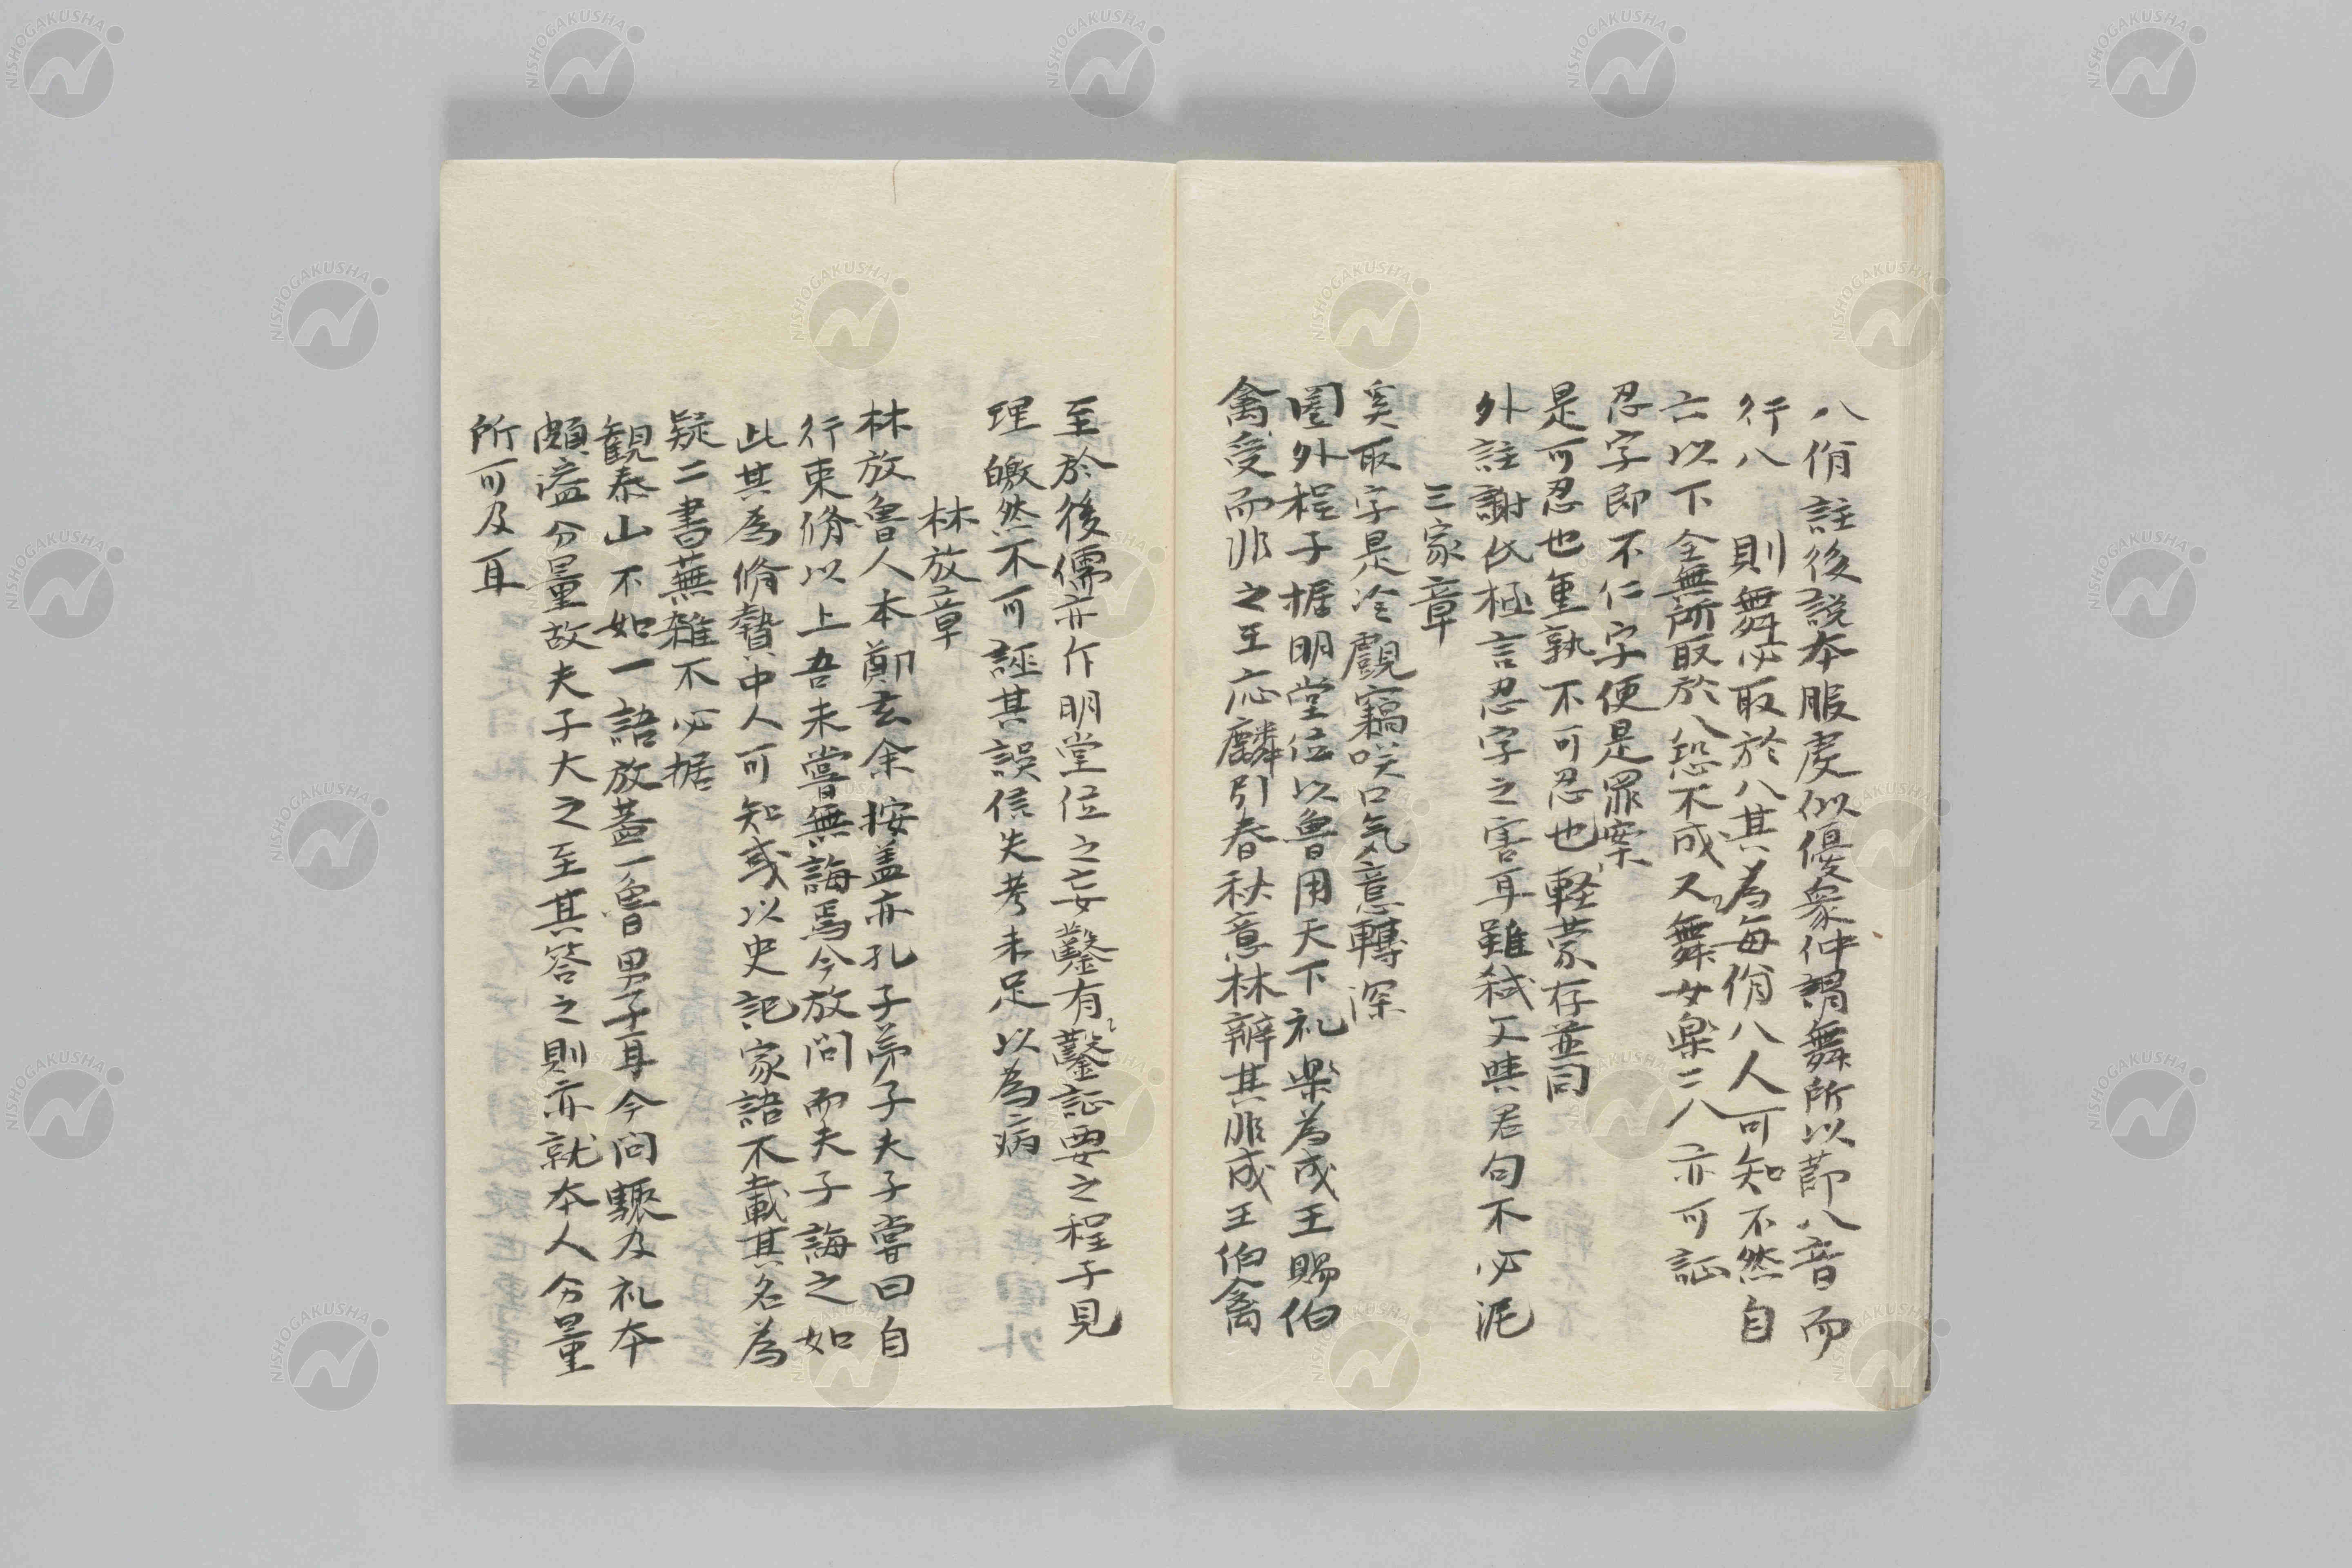 八佾註後説本服虔似優衆仲謂舞所以莭八音而
行八 則舞必取於八其為毎佾八人可知不然自
六以下全無所取於八恐不成又舞女楽二八亦可証
忍字即不仁字便是罪案
是可忍也重孰不可忍也軽蒙存並同
外註謝氏極言忍字之害耳雖弑父與君句不必泥
三家章
奚取字是冷覰竊咲口気意轉深
圏外程子据明堂位以魯用天下礼楽為成王賜伯
禽受而非之王応麟引春秋意林辨其非成王伯禽
至於後儒亦作明堂位之妄鑿有鑿証要之程子見
理皦然不可誣其誤信失考未足以為病
林放章
林放魯人本鄭玄余按盖亦孔子弟子夫子嘗曰自
行束脩以上吾未嘗無誨焉今放問而夫子誨之如
此其為脩贄中人可知或以史記家語不載其名為
疑二書蕪雑不必据
観泰山不如一語放蓋一魯男子耳今問驟及礼本
頗溢分量故夫子大之至其答之則亦就本人分量
所可及耳
NISHOGAKUSHA